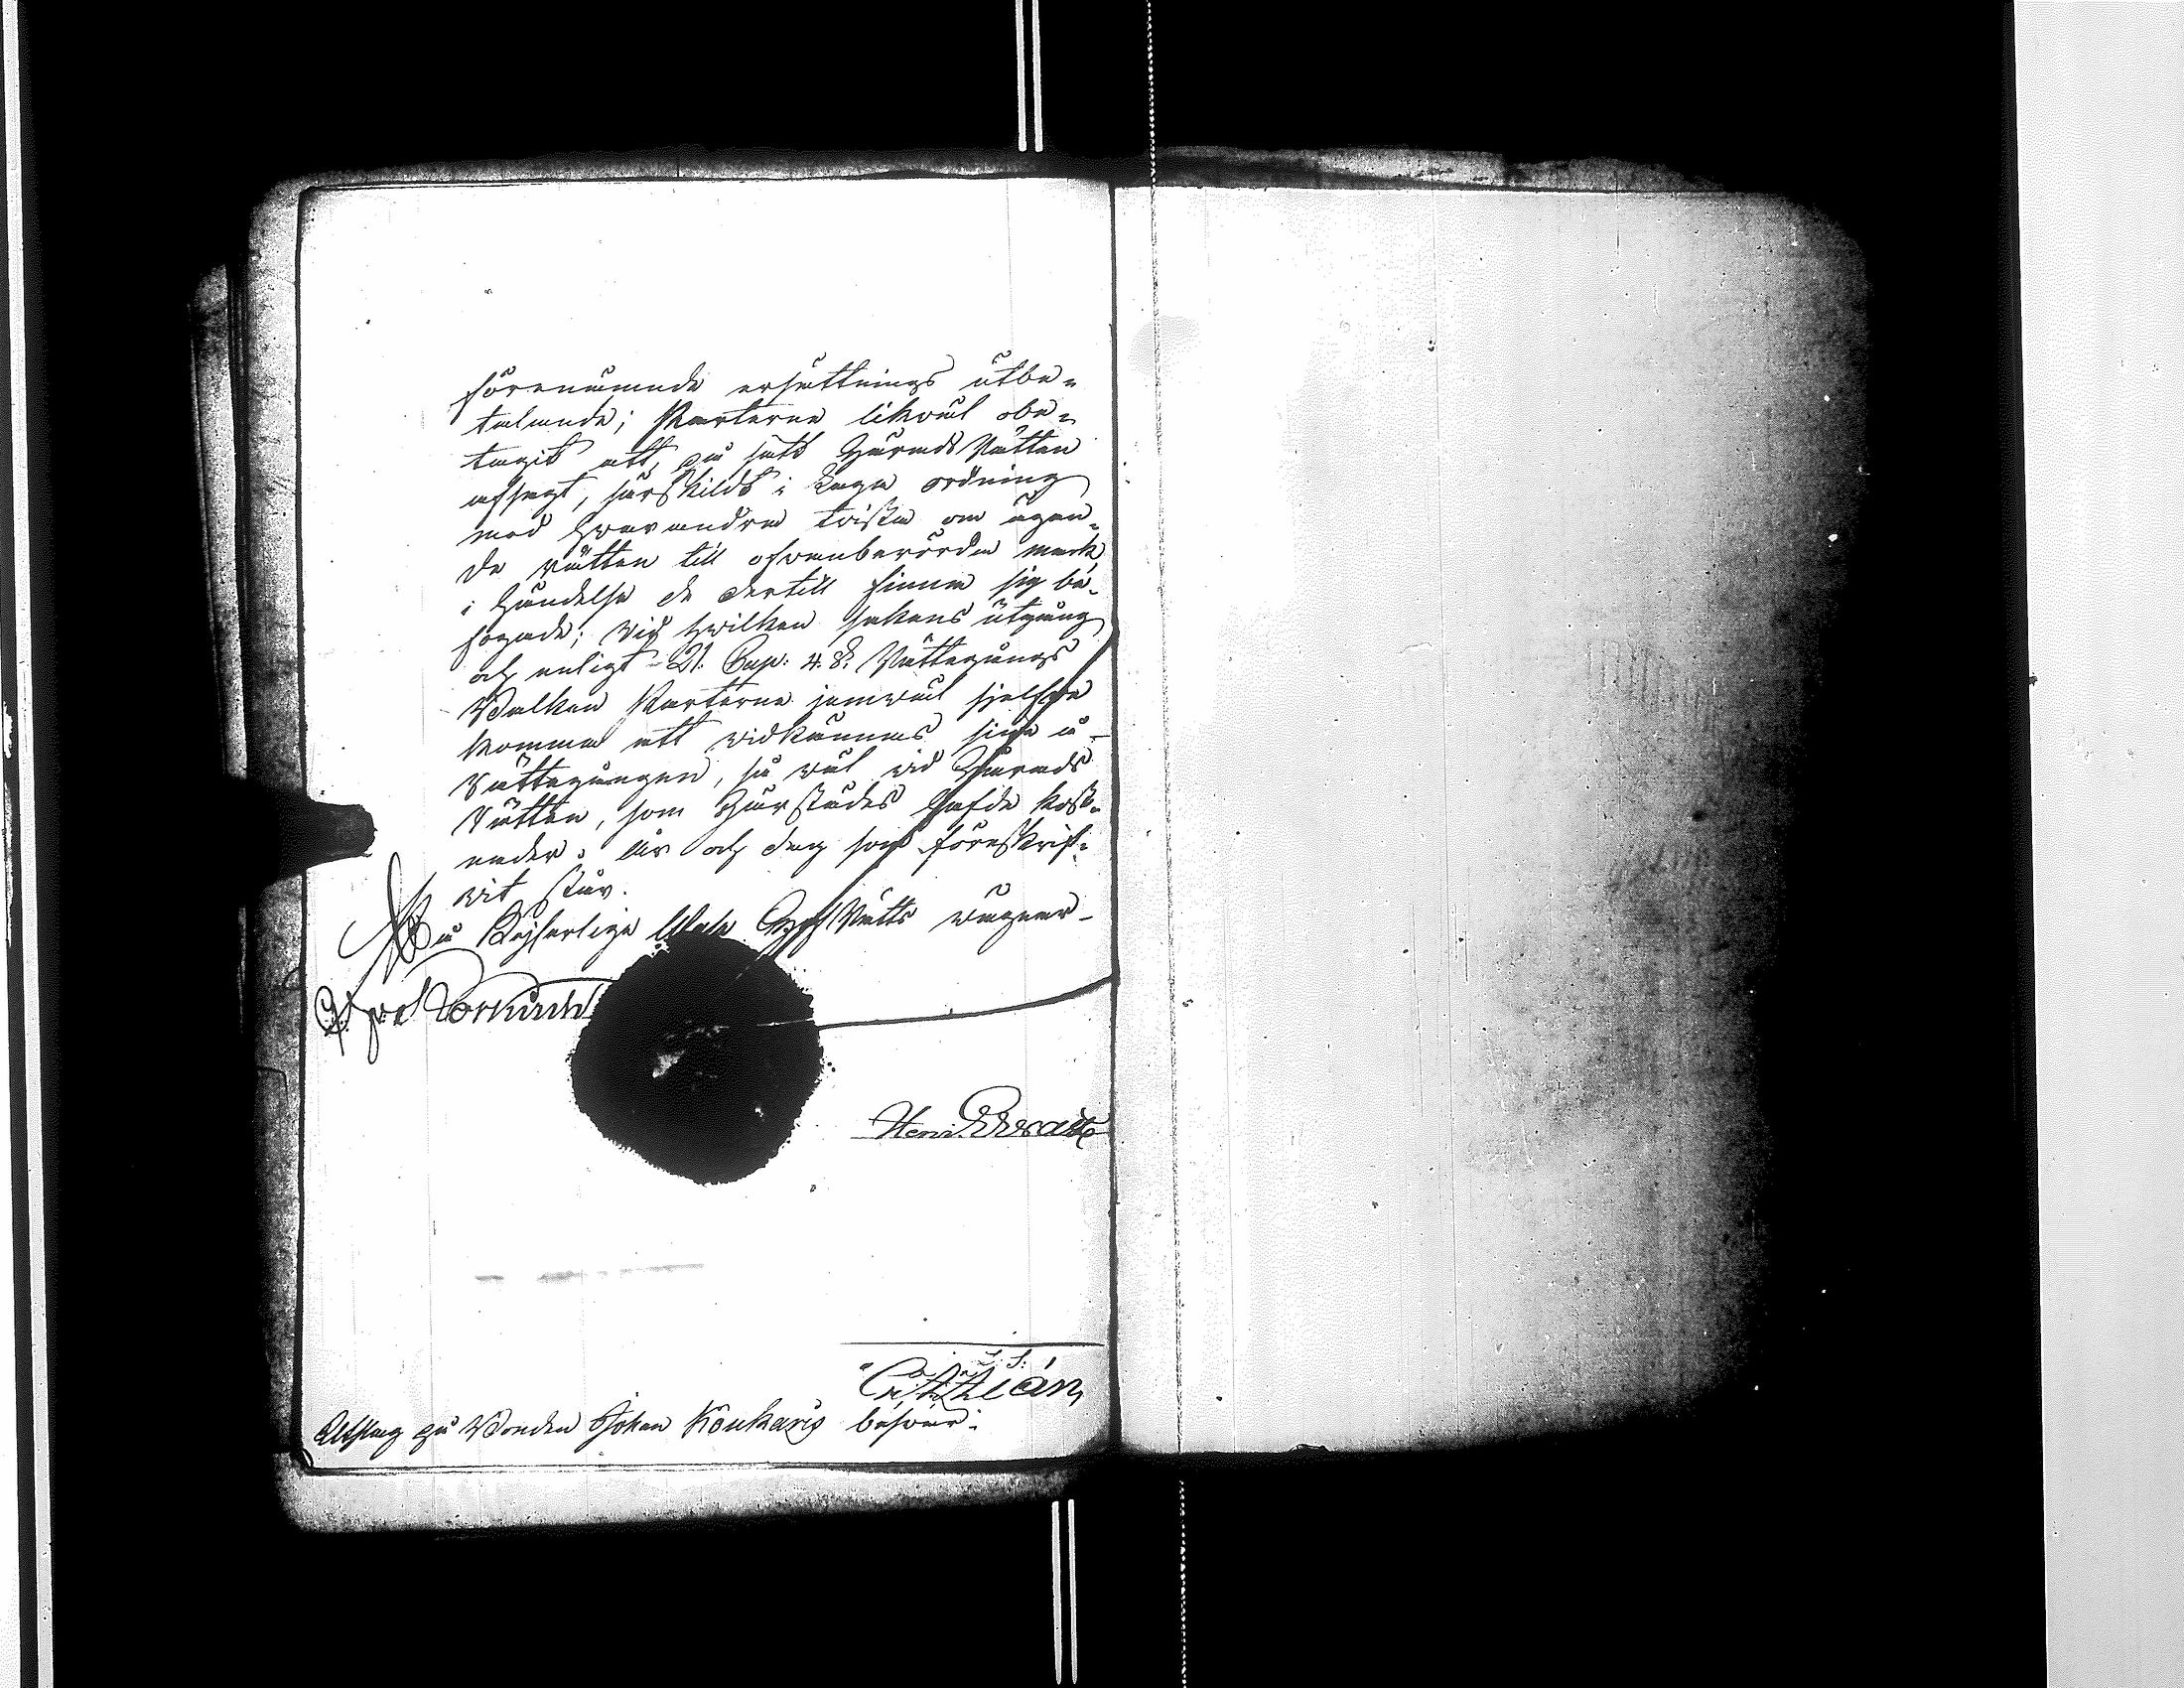 förenämnde ersättnings utbe-
talande; Parterne likwäl obe-
tagit att, på sätt Härads Rätten
afsagt, särskildt i Laga ordning
med hwarandra twista om ägan-
de rätten till ofwanberörde mark
i händelse de dertill finna sig be-
fogade; Vid hwilken sakens utgång
och enligt 21. Cap: 4. §. Rättegångs
Balken Parterne jemwäl sjelfwa
komma att widkännas sina å
Rättegången, så wäl wid Härads
Rätten, som härstädes hafde kost-
nader. År och dag som föreskrif-
wit står.
På Kejserliga Wasa HofRätts wägnar
Henr.
L. S.
Utslag på Bonden Johan Koukaris beswär.